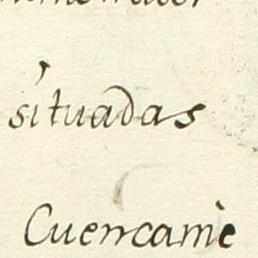 situadas
Cuencamè